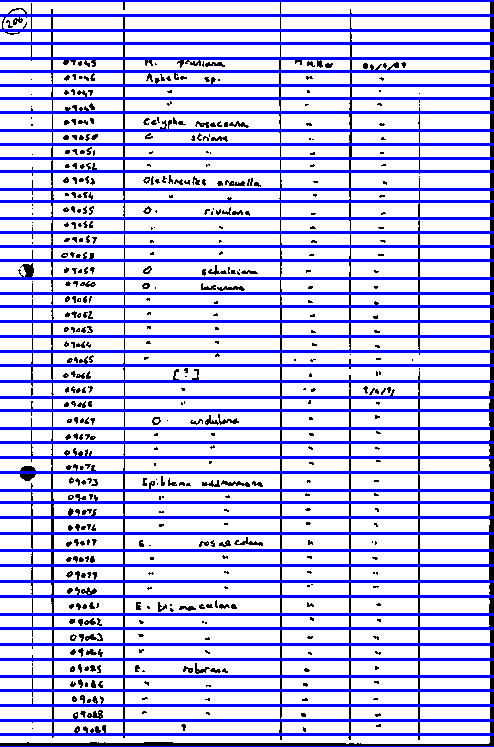 200
09045 H. pruniana M Miller
09046 Aphelia sp. " "
09047 " " "
09048 " " "
09049 Celypha rosaceana " "
09050 C striana " "
09051 " " " "
09052 " " " "
09053 Olethreutes arcuella " "
09054 " " " "
09055 O. rivulana " "
09056 " " " "
09057 " " " "
09058 " " " "
09059 O " "
09060 O. lacunana " "
09061 " " " "
09062 " " " "
09063 " " " "
09064 " " " "
09065 " " " "
09066 [?] " "
09067 " "
09068 " " "
09069 O. undulana " "
09070 " " " "
09071 " " " "
09072 " " " "
09073 Epiblema uddmanniana " "
09074 " " " "
09075 " " " "
09076 " " " "
09077 E. rosaecolana " "
09078 " " " "
09079 " " " "
09080 " " " "
09081 E. trimaculana " "
09082 " " " "
09083 " " " "
09084 " " " "
09085 E. roborana " "
09086 " " " "
09087 " " " "
09088 " " " "
09089 ? " "